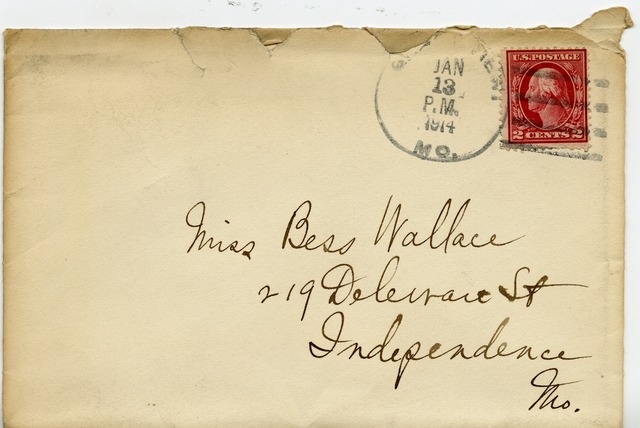 JAN
13
P.M.
1914
MO.
U.S. POSTAGE
2 CENTS 2
Miss Bess Wallace
219 Deleware St
Independence
Mo.